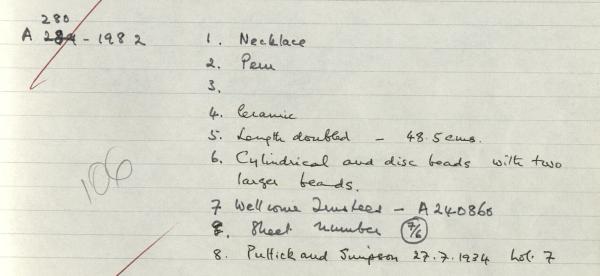 280
A 284 - 1982
1. Necklace
2. Peru
3.
4. Ceramic
5. Length doubled - 48.5 cms.
6. Cylindrical and disc beads with two
larger beads.
7 Wellcome Trustees - A240860
8. Sheet number 7/6
8. Puttick and Simpson 27.7.1934 Lot. 7
106